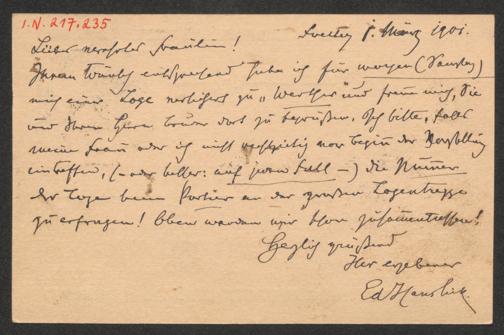 I.N. 217.235
Freitag 1. März 1901.
Liebes verehrtes Fräulein!
Ihrem Wunsch entsprechend habe ich für morgen (Samstag)
mir eine Loge versichert zu „Werther" und freue mich, Sie
und Ihren Herrn Bruder dort zu begrüßen. Ich bitte, falls
meine Frau oder ich nicht rechtzeitig vor Beginn der Vorstellung
eintreffen, (– oder besser: auf jeden Fall –) die Nummer
der Loge beim Portier an der großen Logentreppe
zu erfragen! Oben werden wir schon zusammentreffen!
Herzlich grüßend
Ihr ergebener
Ed Hanslick.